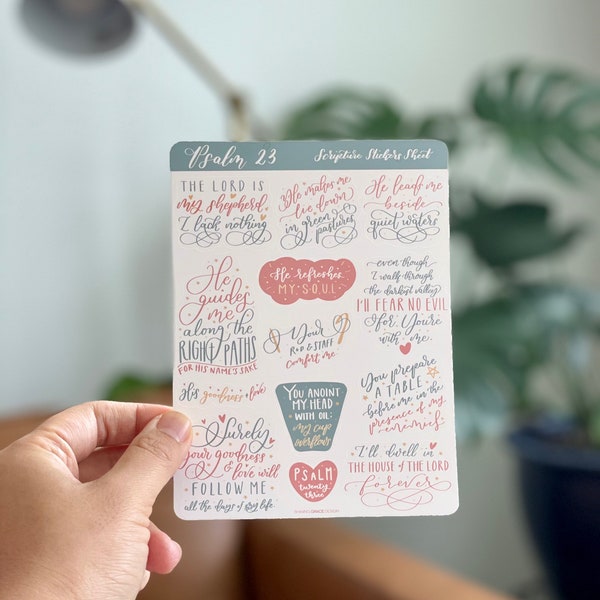 Psalm 23 Scripture Stickers Sheet
THE LORD IS
my shepherd.
I lack nothing
He makes me
lie down
in green
pastures
He leads me
beside
quiet waters
He
guides
me
along the
RIGHT PATHS
FOR HIS NAME'S SAKE
He refreshes
MY SOUL
even though
I walk through
the darkest valley
I'll FEAR NO EVIL
for You're
with me.
Your
ROD & STAFF
Comfort me.
His goodness + love
YOU ANOINT
MY HEAD
WITH OIL:
my cup
overflows
You prepare
A TABLE
before me in the
presence of my
enemies
Surely
your goodness
& love will
FOLLOW ME
all the days of my life.
PSALM
twenty
three
I'll dwell in
THE HOUSE of THE LORD
forever